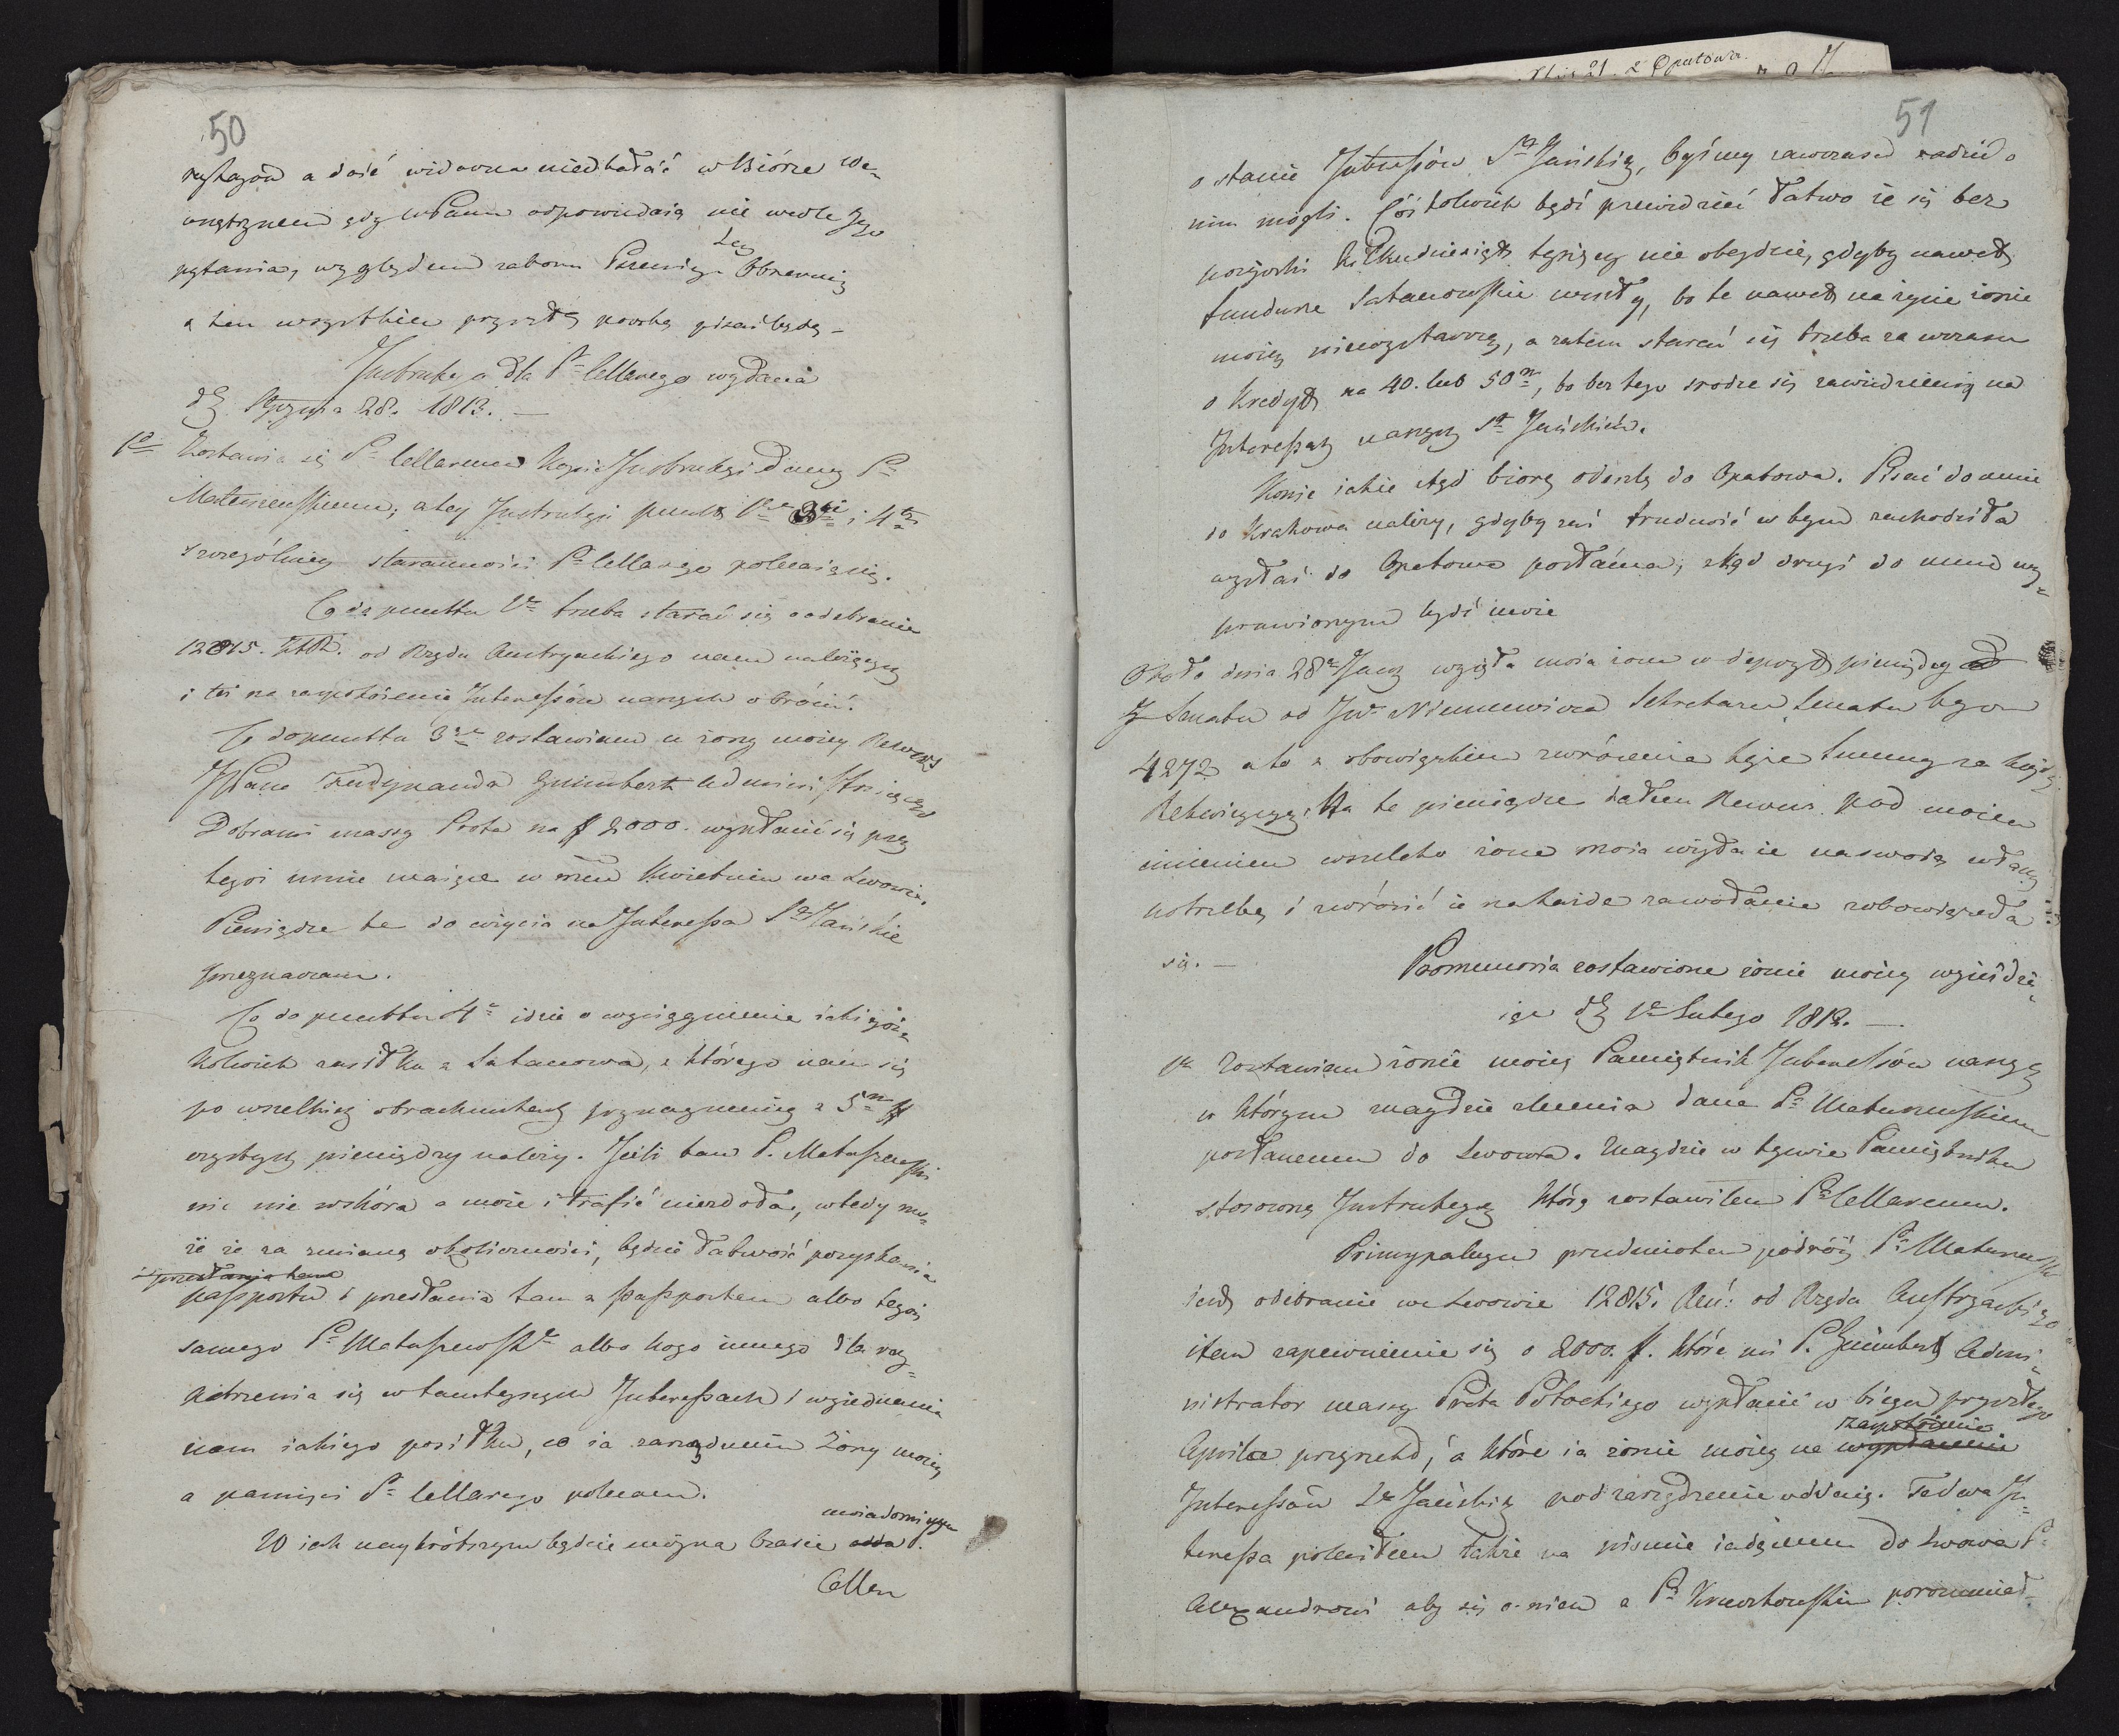 50
rystayów a dość widoczna niedbałość w Biórze We-
wnętrznem gdy WPanu odpowiedaią nie wedle Jego
pytania, względem zaboru Pszenicy Obszerniey
o tem wszystkiem przyszłą pocztą pisać będę —
Instrukcya dla P. Cellarego wydana
d. Stycznia 28. 1813. —
1o Zostawia się P. Cellaremu Kopie Instrukcyi daney P.
Matuszewskiemu; a tey Instrukcyi punkt 1. 3ci i 4ty
szczególney staranności P. Cellarego polecaią się.
Co do punktu 1o trzeba starać się o odebranie
12815. ZłR. od Rządu Austryackiego nam należących
i też na zaspokoienie Interessów naszych obrócić.
Co do punktu 3o zostawiam u żony moiey Rewers
JPana Ferdynanda Gumbert Administruiącego
Dobrami massy Prota na # 2000. wypłacić się przez
tegoż mnie maiące w mcu Kwietniu we Lwowie.
Pieniądze te do użycia na Interessa S. Jańskie
przeznaczam.
Co do punktu 4o idzie o wyciągnienie iakiegoż
kolwiek zasiłku z Satanowa, z którego nam się
po wszelkiey obrachunkach przynaymniey z 5m #
czystych pieniędzy należy. Jeśli tam P. Matuszewski
nic nie wskóra a może i trafić niezdoła, wtedy mo-
że że za zmianą okoliczności, będzie łatwość pozyskania
i przesłania tam
passportu i przesłania tam z passportem albo tegoż
samego P. Matuszewskgo albo kogo innego dla roz-
patrzenia się w tamteyszych Interessach i wyiednania
nam iakiego posiłku, co ia zarządzeniu Żony moiey
a pamięci P. Cellarego polecam.
uwiadomi mnie
W iak naykrótszym będzie można Czasie P.
Cellary
51
o stanie Interessów S. Jańskich, byśmy zawczasu radzić o
nim mogli. Cóż kolwiek bądź przewidzieć łatwo że się bez
pożyczki Kilkudziesiąt tysięcy nie obeydzie, gdyby nawet
fundusze Satanowskie weszły, bo te nawet na życie żonie
moiey niewystarczą, a zatem starać się trzeba za wczasu
o Kredyt na 40. lub 50m, bo bez tego srodze się zawiedziemy na
Interessach naszych St. Jańskich.
Konie iakie stąd biorę odeszlę do Opatowa. Pisać do mnie
do Krakowa należy, gdyby zaś trudność w tym zachodziła
wysłać do Opatowa posłańca, skąd drugi do mnie wy-
prawionym bydź może
Około dnia 28o Janu wzięła moia żona w depozyt pieniędzy
Z Senatu od JW. Niemcewicza Sekretarza Senatu
4272 a to z obowiązkiem zwrócenia teyże Summy na każdą
Rekwizycyą: Na te pieniądze dałem Rewers pod moiem
imieniem wszelako żona moia wzięła ie na swoią własną
potrzebę i zwrócić ie na każde zawołanie zobowiązała
się. —
Promemoria zostawione żonie moiey wyieżdża-
iąc d. 1o Lutego 1813. —
1o Zostawiam żonie moiey Pamiętnik Interessów naszych
w którym znaydzie zlecenia dane P. Matuszewskiemu
posłanemu do Lwowa. Znaydzie w tymże Pamiętniku
stosowną Instrukcyą którą zostawiłem P. Cellaremu.
Pryncypalnym przedmiotem podróży P. Matuszewskgo
iest odebranie we Lwowie 12815. Reń: od Rządu Austryackiego
item zapewnienie się o 2000. #. które mi P. Gumbert Admi-
nistrator massy Prota Potockiego wypłacić w biegu przyszłego
zaspokoienie
Aprila przyrzekł, a które ia żonie moiey na wypłacenie
Interessów S. Jańskich pod zarządzenie oddaię. Te dwa In-
teressa poleciłem także na piśmie iadącemu do Lwowa P.
Alexandrowi aby się o niem z P. porozumiał